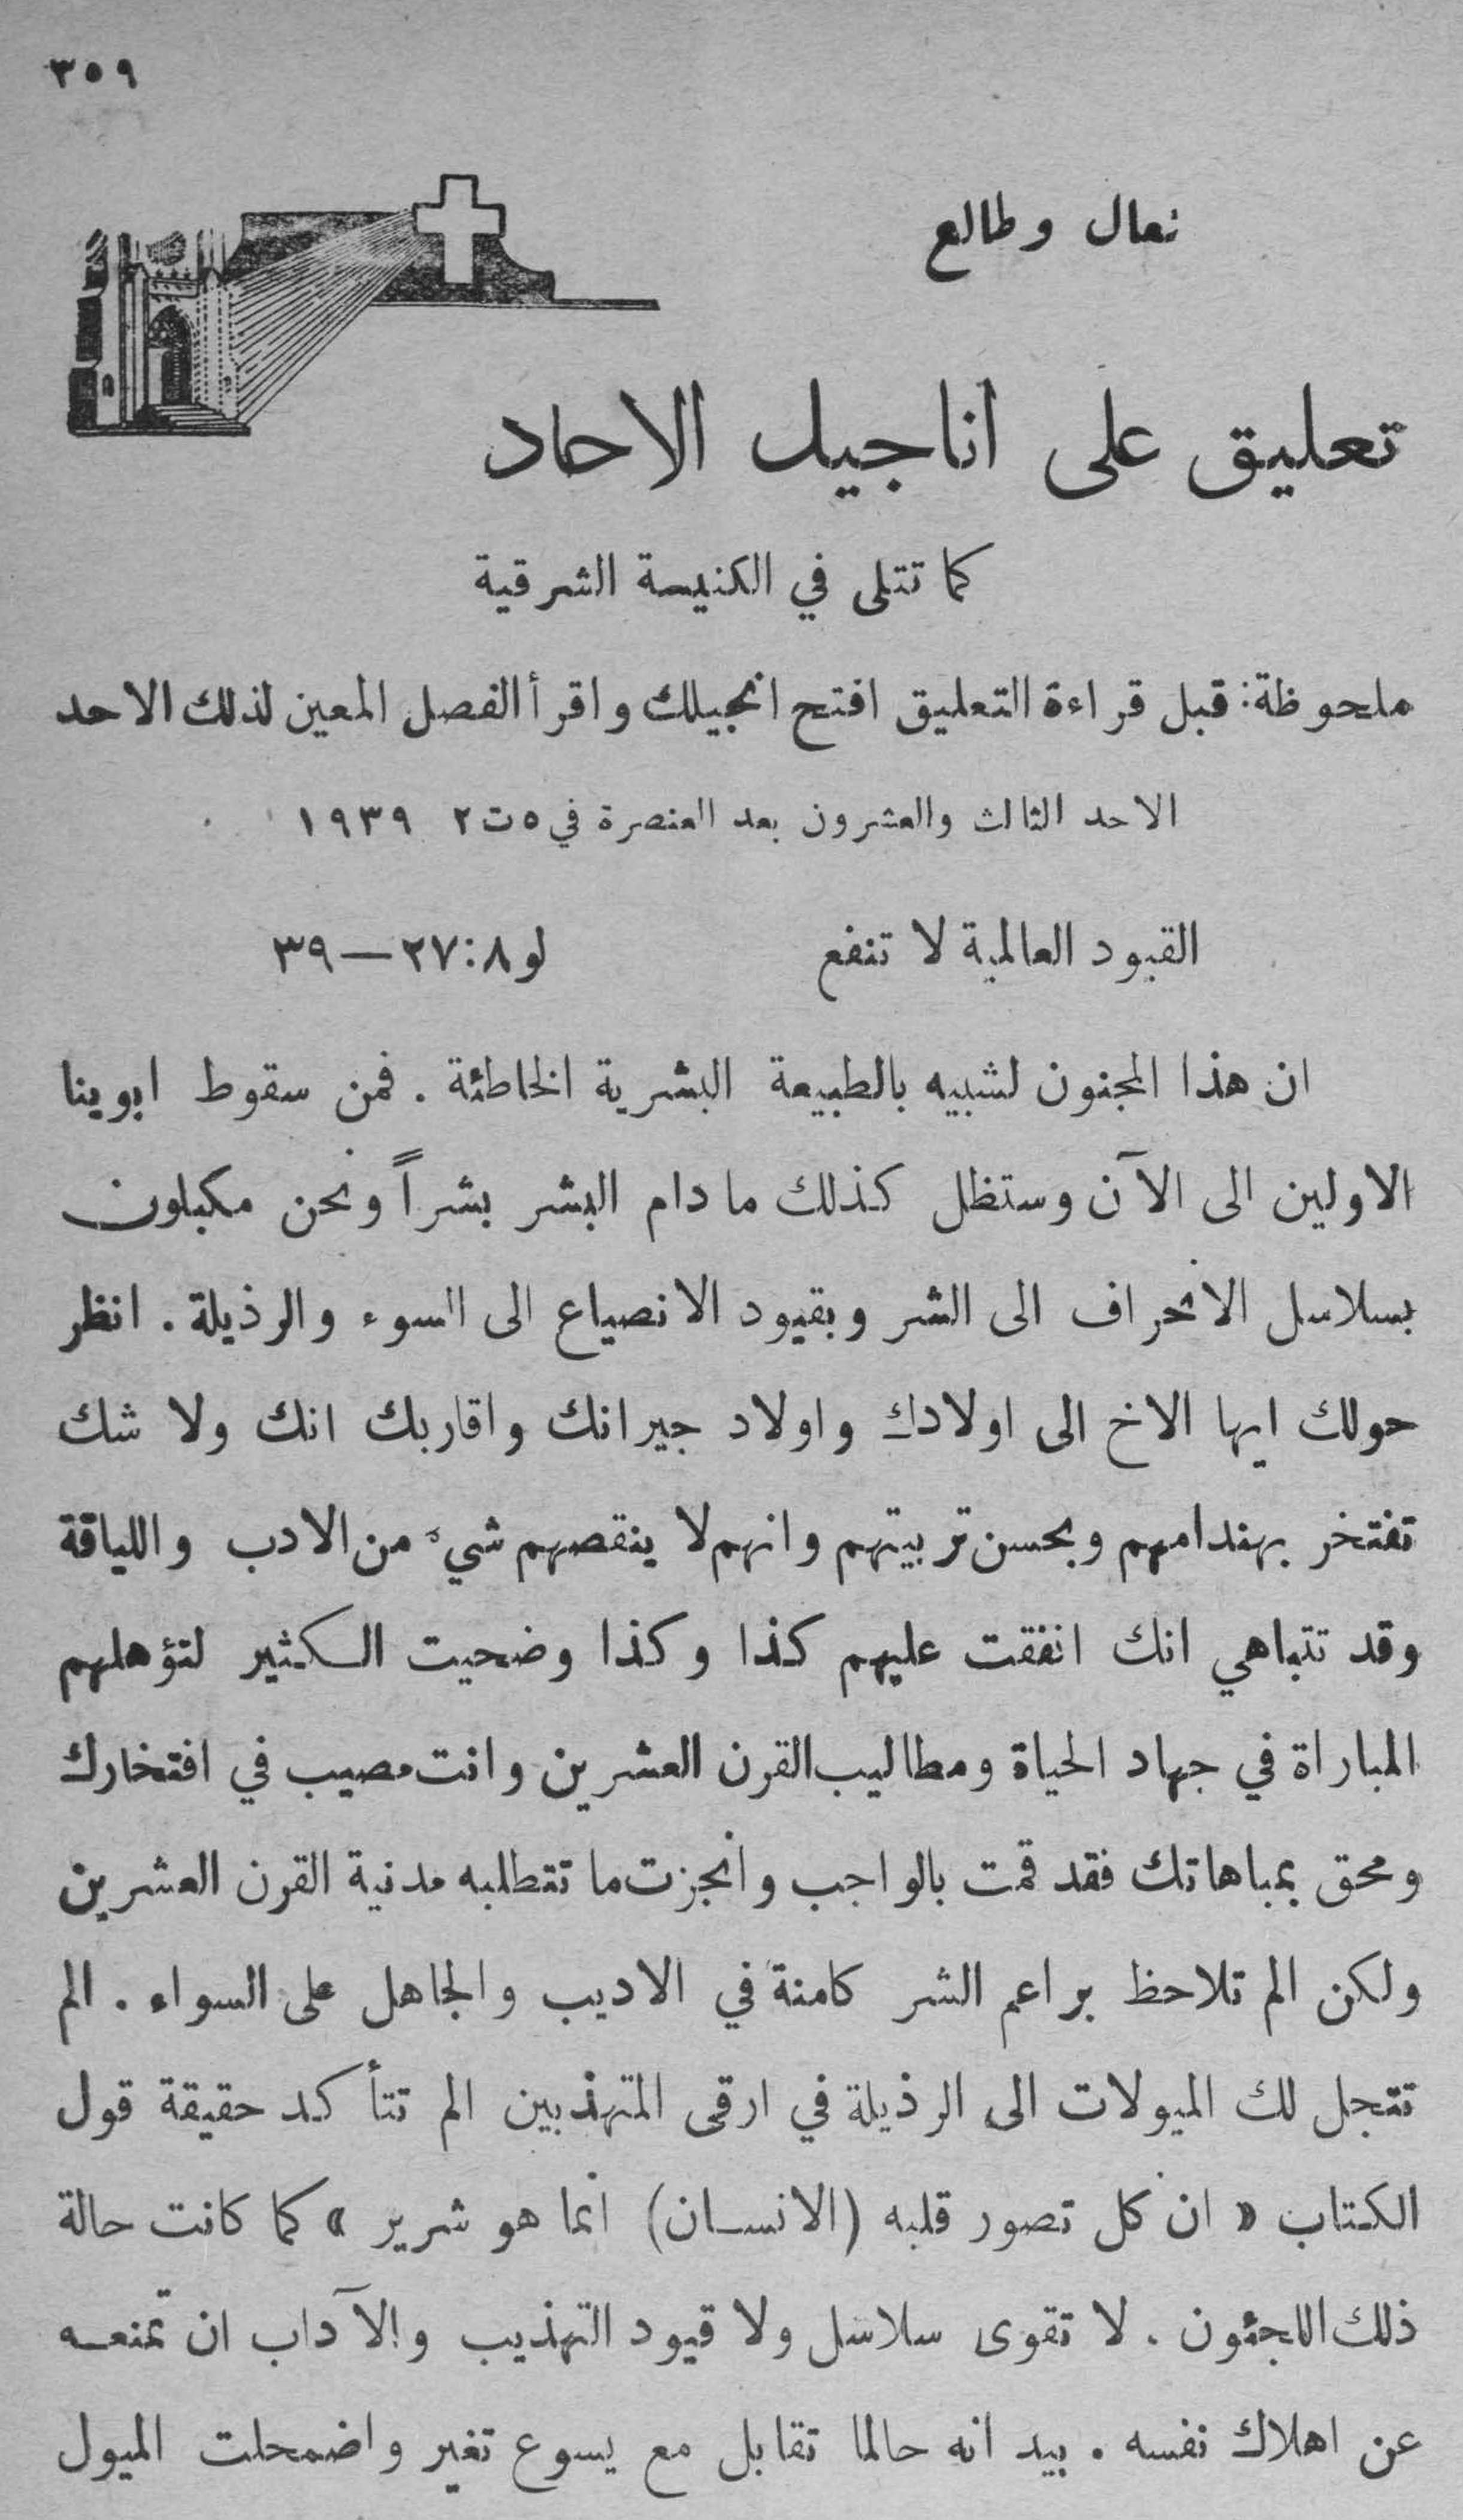 ٣٥٩
تعال وطالع
تعليق على اناجيل الاحاد
كما تتلى في الكنيسة الشرقية
ملحوظة: قبل قراءة التعليق افتح انجيلك واقرأ الفصل المعين لذلك الاحد
الاحد الثالث والعشرون بعد العنصرة في ٥ ت٢ ١٩٣٩
القيود العالمية لا تنفع لو ٨:٢٧—٣٩
ان هذا المجنون لشبيه بالطبيعة البشرية الخاطئة . فمن سقوط ابوينا
الاولين الى الآن وستظل كذلك ما دام البشر بشراً ونحن مكبلون
بسلاسل الانحراف الى الشر وبقيود الانصياع الى السوء والرذيلة . انظر
حولك ايها الاخ الى اولادك واولاد جيرانك واقاربك انك ولا شك
تفتخر بهندامهم وبحسن تربيتهم وانهم لا ينقصهم شيء من الادب واللياقة
وقد تتباهي انك انفقت عليهم كذا وكذا وضحيت الكثير لتؤهلهم
المباراة في جهاد الحياة ومطاليب القرن العشرين وانت مصيب في افتخارك
ومحق بمباهاتك فقد قمت بالواجب وانجزت ما تتطلبه مدنية القرن العشرين
ولكن الم تلاحظ براعم الشر كامنة في الاديب والجاهل على السواء . الم
تتجل لك الميولات الى الرذيلة في ارقى المتهذبين الم تتأكد حقيقة قول
الكتاب « ان كل تصور قلبه (الانسان) انما هو شرير » كما كانت حالة
ذلك اللجئون . لا تقوى سلاسل ولا قيود التهذيب والآداب ان تمنعه
عن اهلاك نفسه . بيد انه حالما تقابل مع يسوع تغير واضمحلت الميول